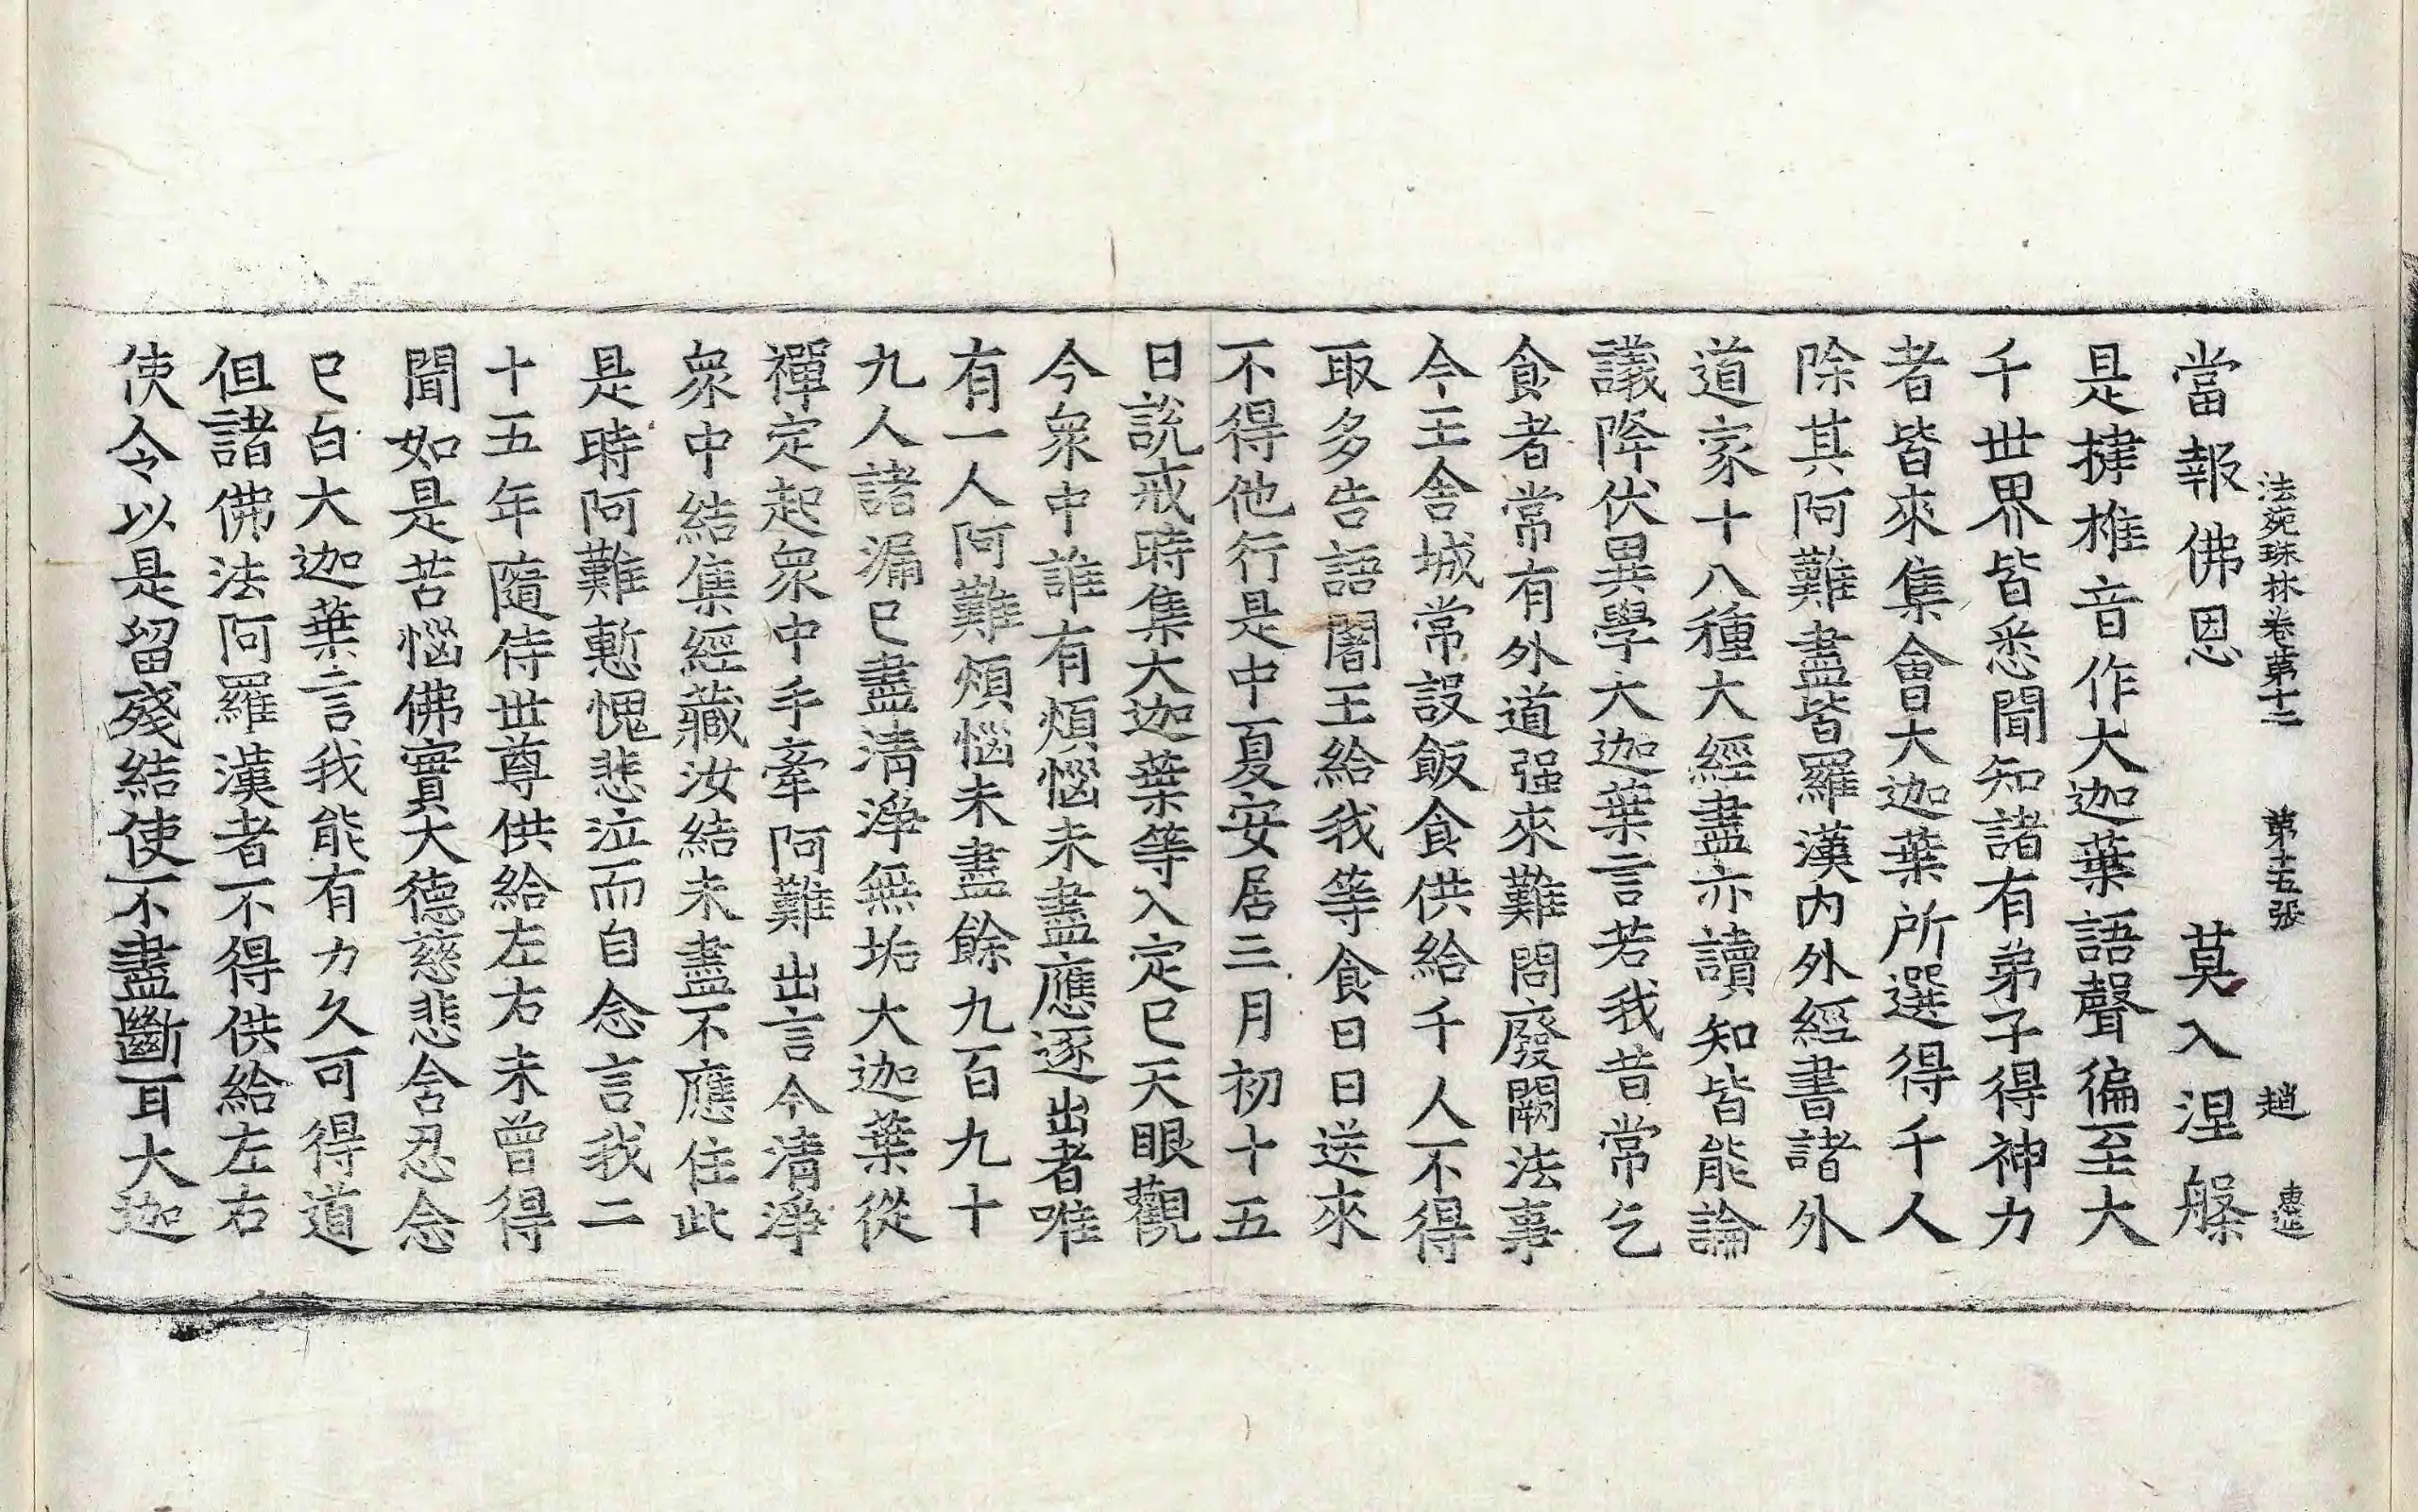 法苑珠林卷第十二 第十五張 趙
當報佛恩 莫入涅槃
是揵椎音作大迦葉語聲徧至大
千世界皆悉聞知諸有弟子得神力
者皆來集會大迦葉所選得千人
除其阿難盡皆羅漢内外經書諸外
道家十八種大經盡亦讀知皆能論
議降伏異學大迦葉言若我昔常乞
食者常有外道强來難問廢闕法事
今王舍城常設飯食供給千人不得
取多告語闍王給我等食日日送來
不得他行是中夏安居三月初十五
日說戒時集大迦葉等入定已天眼觀
今衆中誰有煩惱未盡應逐出者唯
有一人阿難煩惱未盡餘九百九十
九人諸漏已盡清淨無垢大迦葉從
禪定起衆中手牽阿難出言今清淨
衆中結集經藏汝結未盡不應住此
是時阿難慙愧悲泣而自念言我二
十五年隨侍世尊供給左右未曾得
聞如是苦惱佛實大德慈悲含忍念
已白大迦葉言我能有力久可得道
但諸佛法阿羅漢者不得供給左右
使令以是留殘結使不盡斷耳大迦